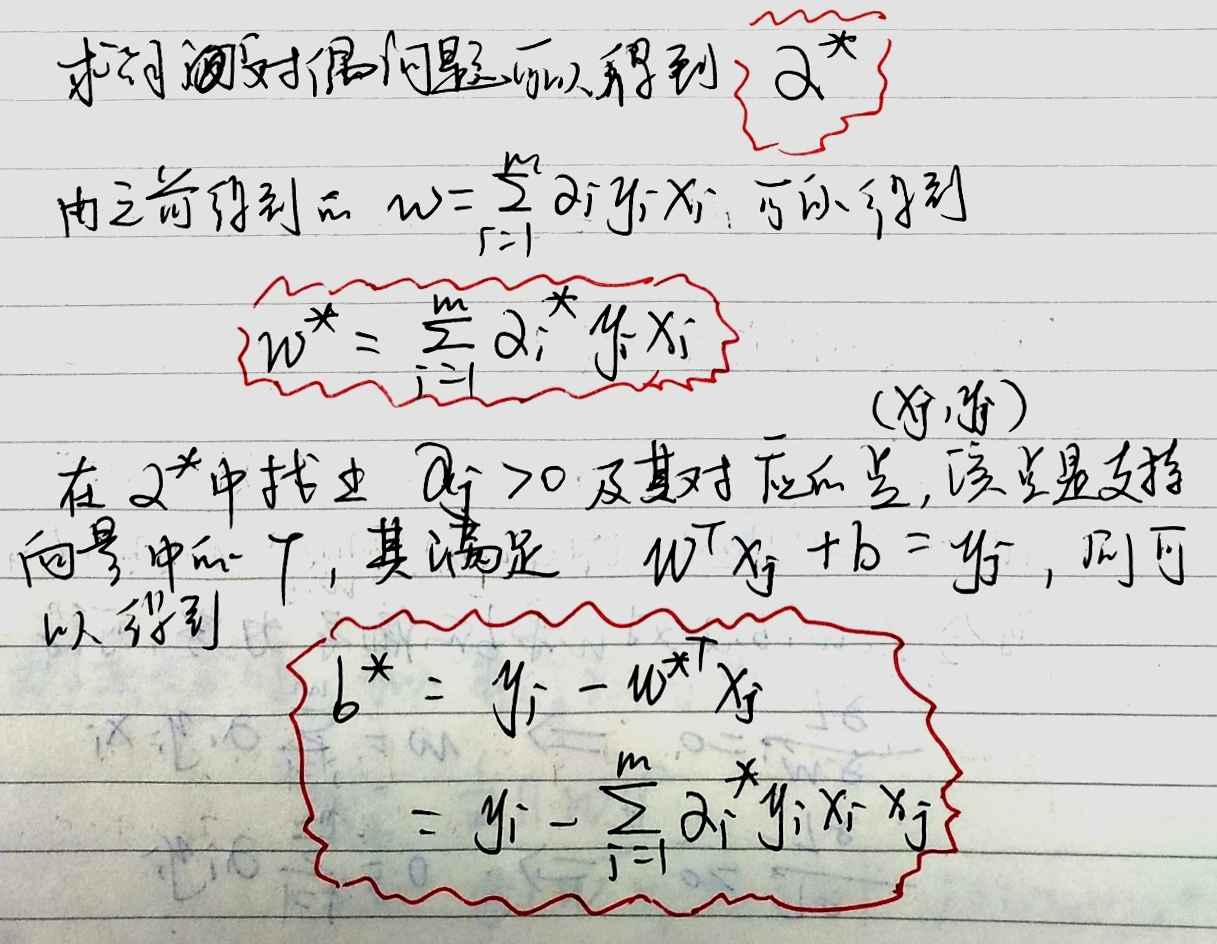 求解对偶问题可以得到 α*
由之前得到的 w = Σ_{i=1}^{m} α_i y_i x_i 可以得到
w* = Σ_{i=1}^{m} α_i* y_i x_i
(x_j, y_j)
在 α* 中找出 α_j > 0 及其对应的点, 该点是支持
向量中的一个, 其满足 w^T x_j + b = y_j, 则可
以得到
b* = y_j - w*^T x_j
= y_j - Σ_{i=1}^{m} α_i* y_i x_i x_j